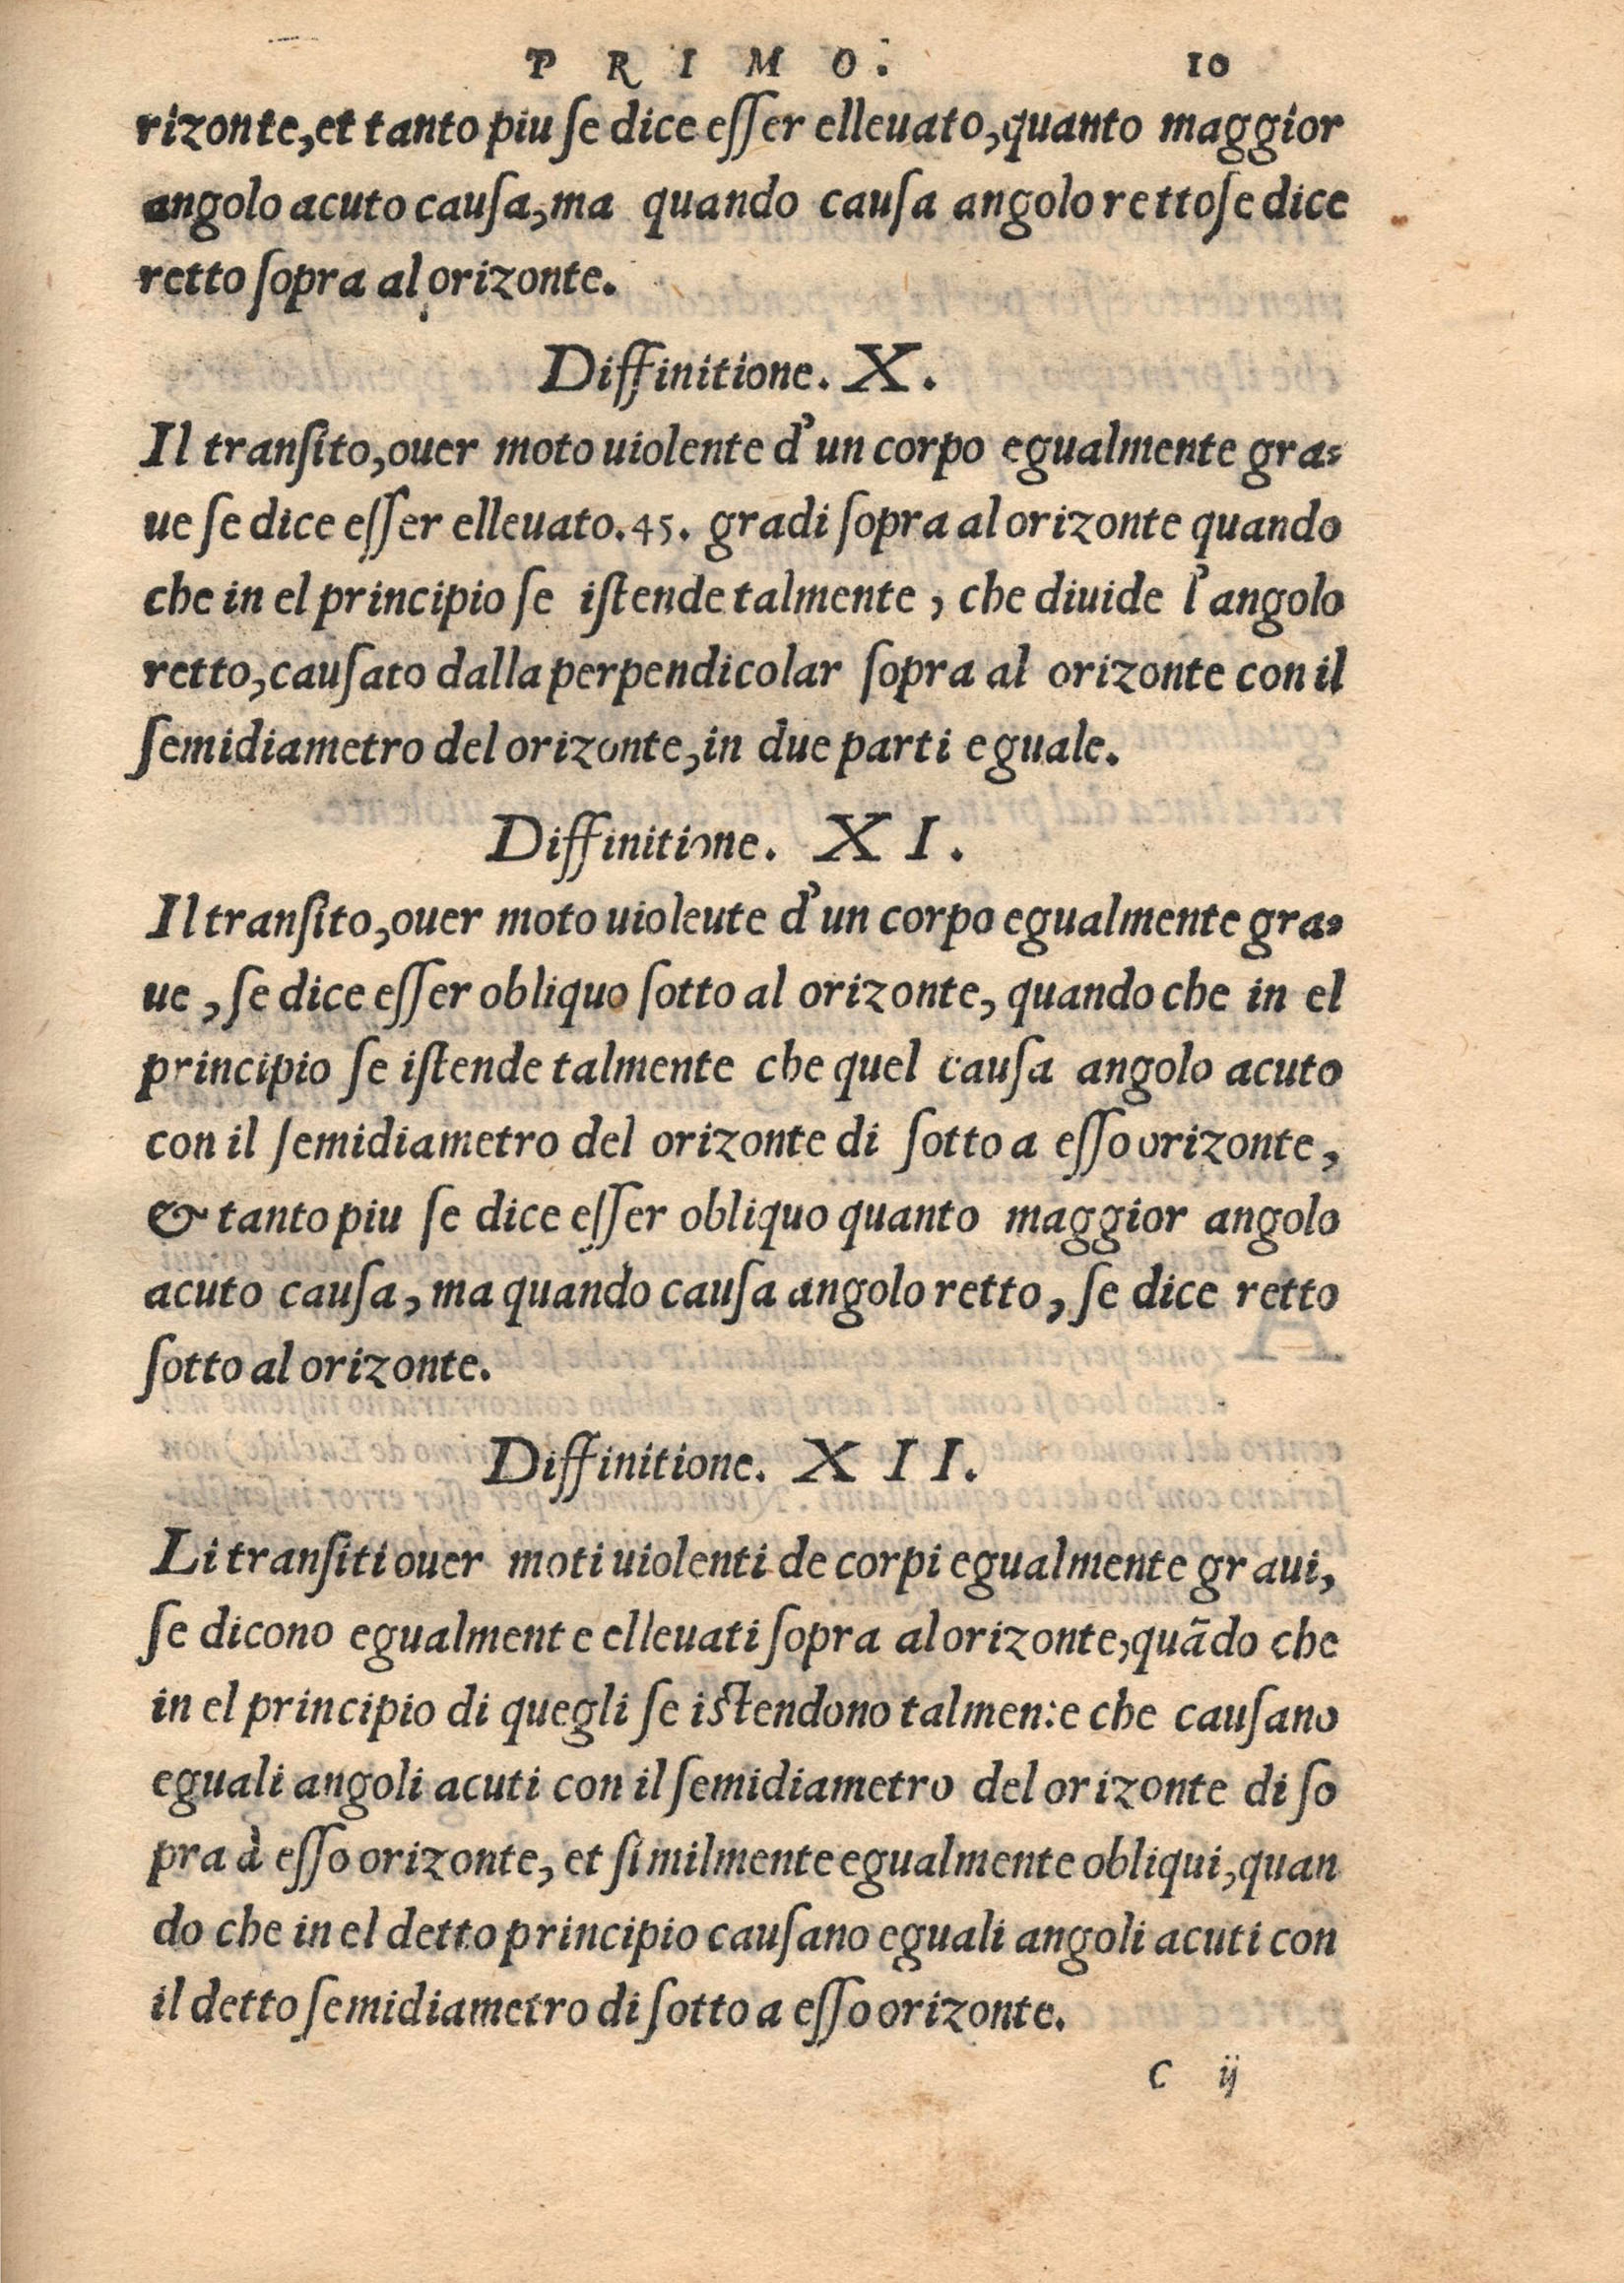 PRIMO. 10
rizonte,et tanto piu ſe dice eſſer elleuato,quanto maggior
angolo acuto cauſa,ma quando cauſa angolo retto ſe dice
retto ſopra al orizonte.
Diffinitione. X.
Il tranſito,ouer moto uiolente d'un corpo egualmente gra-
ue ſe dice eſſer elleuato.45. gradi ſopra al orizonte quando
che in el principio ſe iſtende talmente, che diuide l'angolo
retto,cauſato dalla perpendicolar ſopra al orizonte con il
ſemidiametro del orizonte,in due parti eguale.
Diffinitione. XI.
Il tranſito,ouer moto uioleute d'un corpo egualmente gra-
ue, ſe dice eſſer obliquo ſotto al orizonte, quando che in el
principio ſe iſtende talmente che quel cauſa angolo acuto
con il ſemidiametro del orizonte di ſotto a eſſo orizonte,
& tanto piu ſe dice eſſer obliquo quanto maggior angolo
acuto cauſa, ma quando cauſa angolo retto, ſe dice retto
ſotto al orizonte.
Diffinitione. XII.
Li tranſiti ouer moti uiolenti de corpi egualmente graui,
ſe dicono egualmente elleuati ſopra al orizonte,quãdo che
in el principio di quegli ſe iſtendono talmente che cauſano
eguali angoli acuti con il ſemidiametro del orizonte di ſo
pra à eſſo orizonte, et ſimilmente egualmente obliqui,quan
do che in el detto principio cauſano eguali angoli acuti con
il detto ſemidiametro di ſotto a eſſo orizonte.
C ij